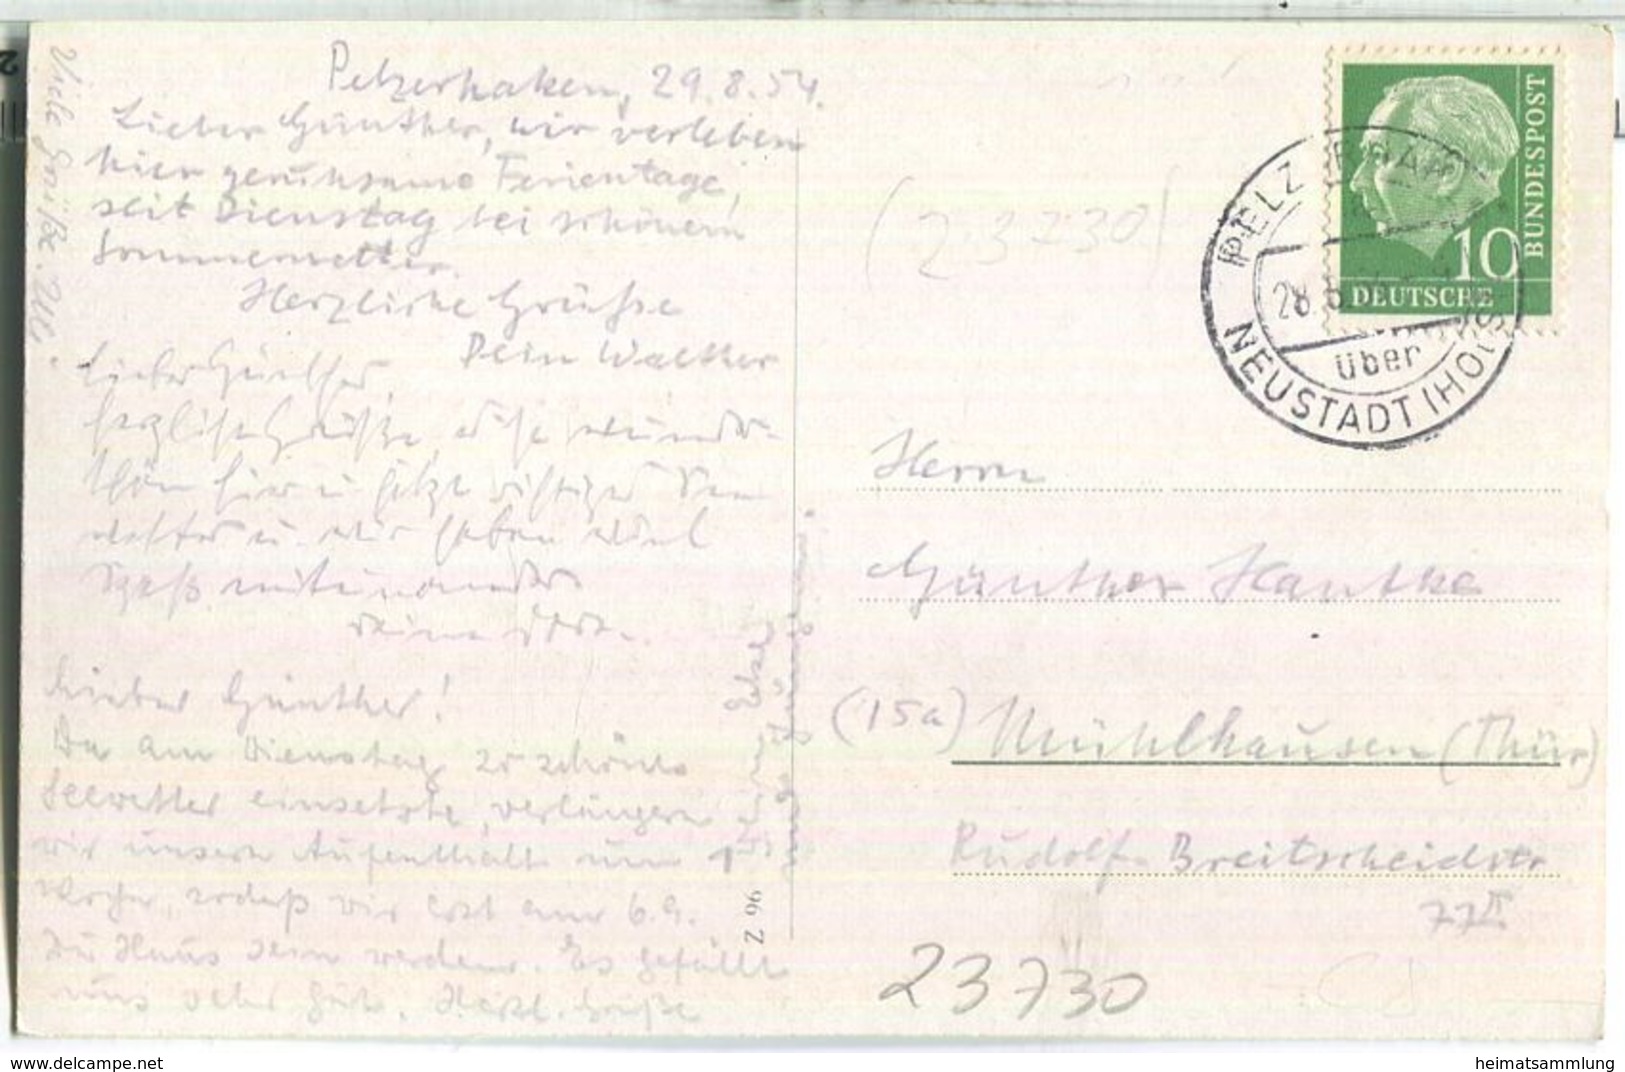 Pelzerhaken, 29.8.54.
Lieber Günther, wir verleben
hier geruhsame Ferientage,
seit Dienstag bei schönem
Sommerwetter.
Herzliche Grüße
Dein Walther
Lieber Günther,
herzliche Grüße,
schön hier u. jetzt richtiges
u. wir haben viel
Spaß miteinander
Deine
Lieber Günther!
Da am Dienstag so schönes
Seewetter einsetzte, verlängern
wir unsern Aufenthalt um 1
Woche, sodaß wir erst am 6.9.
zu Haus sein werden. Es gefällt
uns sehr gut. Herzl. Grüße
Viele Grüße.
Z 96
(23730)
BUNDESPOST
10
DEUTSCHE
PELZERHAKEN
28.8.54
über
NEUSTADT (HOLST)
Herrn
Günther Hantke
(15a) Mühlhausen (Thür)
Rudolf-Breitscheidstr
77 II
23730
www.delcampe.net
heimatsammlung